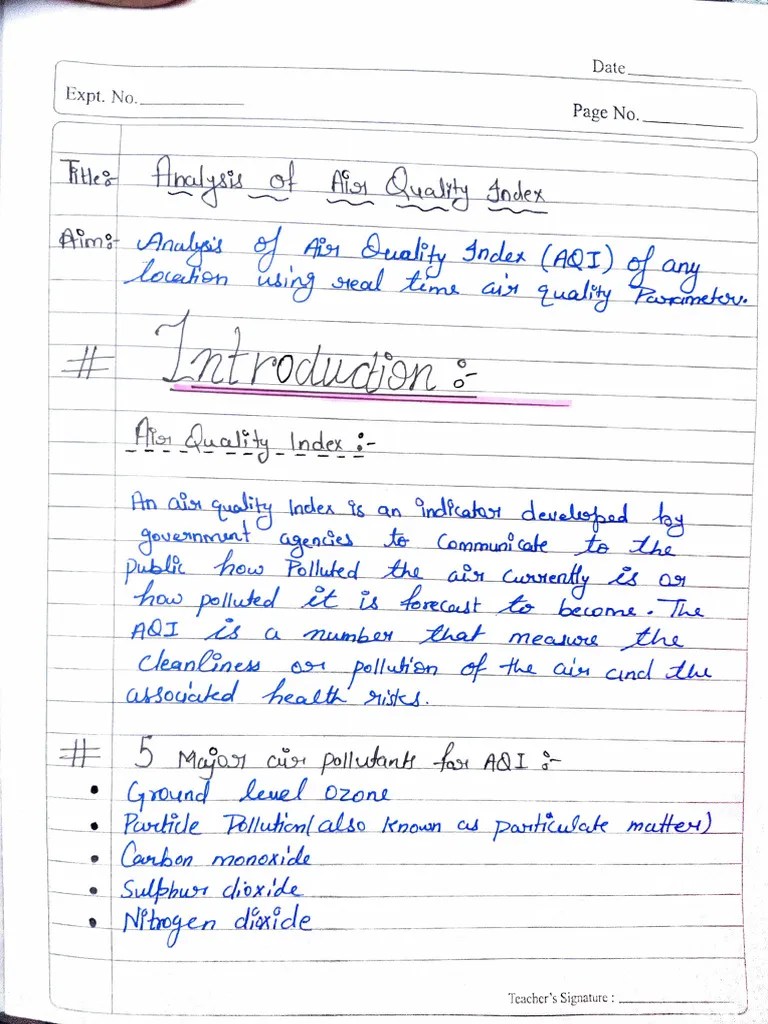 Date
Expt. No.
Page No.
Title:- Analysis of Air Quality Index
Aim:- Analysis of Air Quality Index (AQI) of any
location using real time air quality Parameter.
# Introduction :-
Air Quality Index :-
An air quality Index is an indicator developed by
government agencies to communicate to the
public how Polluted the air currently is or
how polluted it is forecast to become. The
AQI is a number that measure the
cleanliness or pollution of the air and the
associated health risks.
# 5 Major air pollutants for AQI :-
• Ground level ozone
• Particle Pollution (also known as particulate matter)
• Carbon monoxide
• Sulphur dioxide
• Nitrogen dioxide
Teacher's Signature :